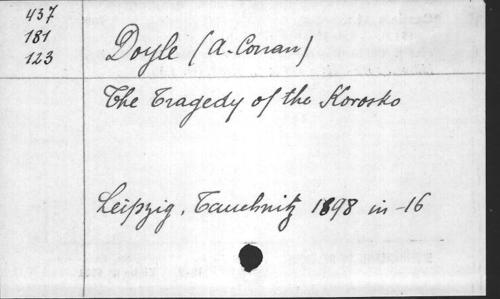 437
181
123
Doyle (A. Conan)
The Tragedy of the Korosko
Leipzig, Tauchnitz 1898 in-16